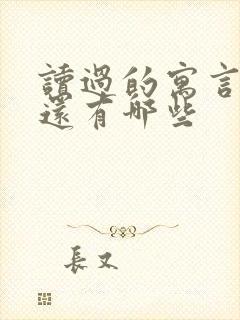 讀過的寓言
還有哪些
長又